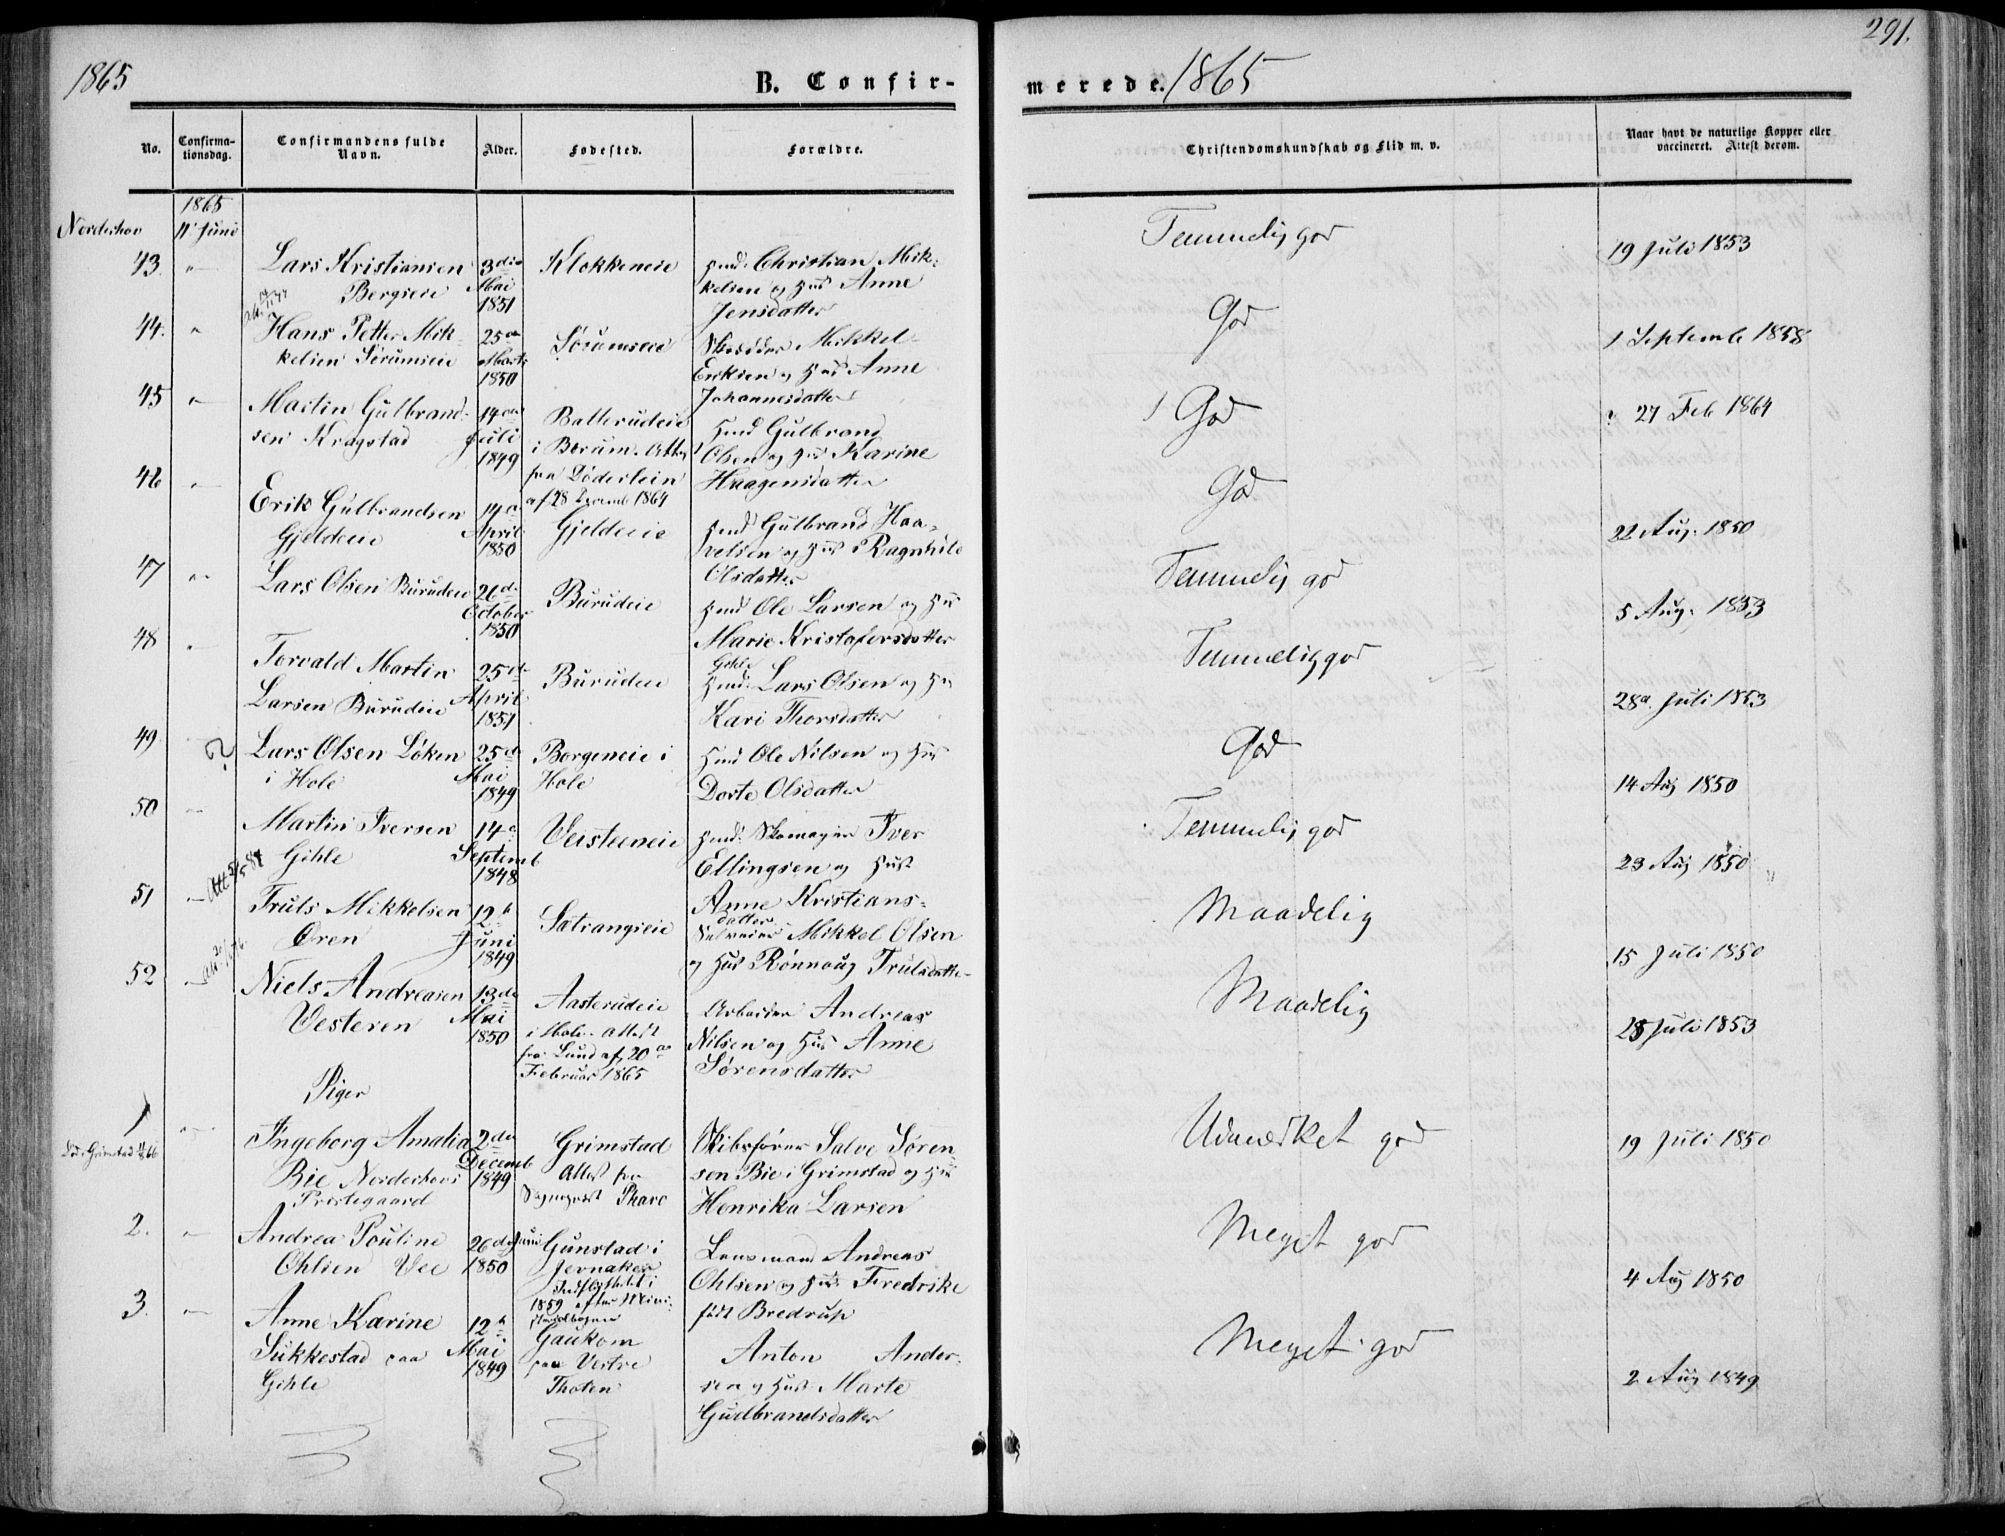 1865
B. Confir-
merede. 1865
291.
No.
Confirma-
tionsdag.
Confirmandens fulde
Navn.
Alder.
Fødested.
Forældre.
Christendomskundskab og Flid m. v.
Naar havt de naturlige Kopper eller
vaccineret. Attest derom.
Norderhov
1865
11 Juni
43. " Lars Kristiansen
Bergseie
3die
Mai
1851
Klokkeneie
Christian Mik-
kelsen og Anne
Jensdatter
Temmelig god
19 Juli 1853
44. " Hans Petter Mik-
kelsen Sørumseie
25de
Marts
1850
Sørumseie
Skrædder Mikkel
Eriksen og Anne
Johannesdatter
God
1 Septemb 1858
45 " Martin Gulbrand-
sen Kragstad
14de
Juli
1849
Ballerudeie
i Bærum. Attest
fra Döderlein
af 28 Decemb 1864
Gulbrand
Olsen og Karine
Haagensdatter
God
27 Feb 1864
46 " Erik Gulbrandsen
Gjeldeeie
14de
April
1850
Gjeldeeie
Gulbrand Haa-
velsen og Ragnhild
Olsdatter
God
22 Aug. 1850
47 " Lars Olsen Burudeie
26de
October
1850
Burudeie
Ole Larsen og
Marie Kristofersdatter
Temmelig god
5 Aug. 1853
48 " Torvald Martin
Larsen Burudeie
25de
April
1851
Burudeie
Lars Olsen og
Kari Thorsdatter
Temmelig god
28de Juli 1853
49. Lars Olsen Löken
i Hole
25de
Mai
1849
Borgeneie i
Hole
Ole Nilsen og
Dorte Olsdatter
God
14 Aug 1850
50 " Martin Iversen
Gihle
14de
Septemb
1848
Veisteeneie
Skomager Iver
Ellingsen og Hust
Anne Kristians-
datter
Temmelig god
23 Aug 1850
51 " Truls Mikkelsen
Ören
12te
Juni
1849
Sætrangseie
Selveier Mikkel Olsen
og Rønnoug Trulsdatter
Maadelig
15 Juli 1850
52 " Niels Andreasen
Vesteren
13de
Mai
1850
Aasterudeie
i Hole. Attest
fra Lund af 20de
Februar 1865
Arbeider Andreas
Nilsen og Anne
Sørensdatter
Maadelig
28 Juli 1853
Piger
1 " Ingeborg Amalia
Bie Norderhovs
Prestegaard
2den
Decemb
1849
Grimstad
Attest fra
Sogneprest
Skibsfører Salve Søren
sen Bie i Grimstad og
Henrika Larsen
Udmærket god
19 Juli 1850
2. " Andrea Pouline
Ohlsen Vee
26de Juni
1850
Gunstad i
Jevnaker
Indflyttet i
1859 efter Mini-
sterialbogen
Lensmand Andreas
Ohlsen og Fredrike
født Bredrup
Meget god
4 Aug 1850
3. " Anne Karine
Sukkestad paa
Gihle
12te
Mai
1849
Gaukom
paa Vestre
Thoten
Anton Ander-
sen og Hust Marte
Gudbrandsdatter
Meget god
2 Aug 1849